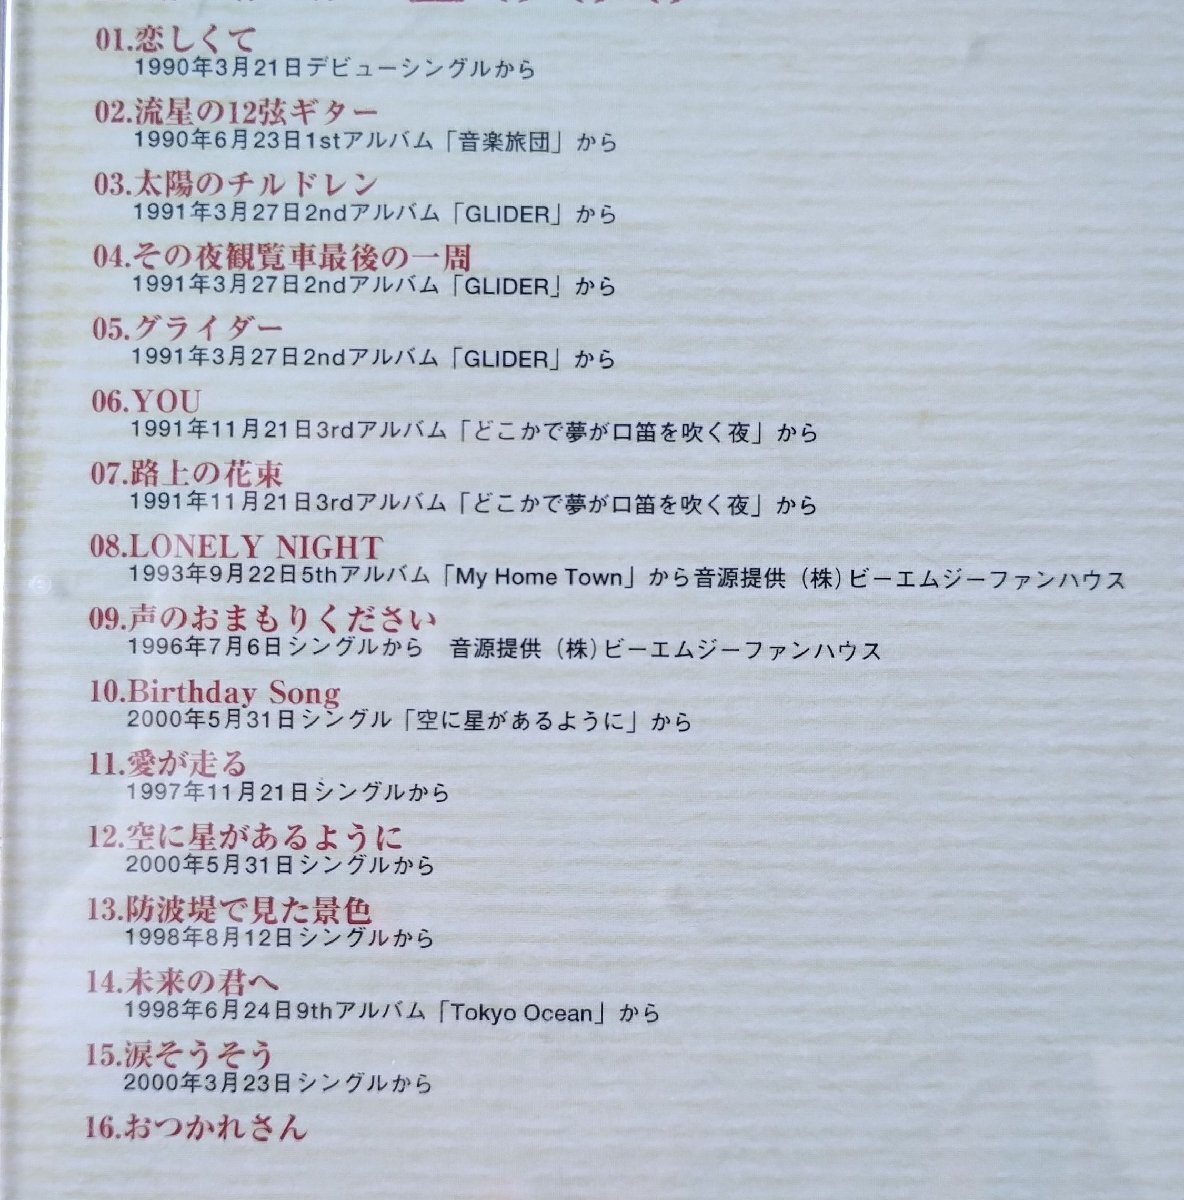 01.恋しくて
1990年3月21日デビューシングルから
02.流星の12弦ギター
1990年6月23日1stアルバム「音楽旅団」から
03.太陽のチルドレン
1991年3月27日2ndアルバム「GLIDER」から
04.その夜観覧車最後の一周
1991年3月27日2ndアルバム「GLIDER」から
05.グライダー
1991年3月27日2ndアルバム「GLIDER」から
06.YOU
1991年11月21日3rdアルバム「どこかで夢が口笛を吹く夜」から
07.路上の花束
1991年11月21日3rdアルバム「どこかで夢が口笛を吹く夜」から
08.LONELY NIGHT
1993年9月22日5thアルバム「My Home Town」から音源提供（株）ビーエムジーファンハウス
09.声のおまもりください
1996年7月6日シングルから　音源提供（株）ビーエムジーファンハウス
10.Birthday Song
2000年5月31日シングル「空に星があるように」から
11.愛が走る
1997年11月21日シングルから
12.空に星があるように
2000年5月31日シングルから
13.防波堤で見た景色
1998年8月12日シングルから
14.未来の君へ
1998年6月24日9thアルバム「Tokyo Ocean」から
15.涙そうそう
2000年3月23日シングルから
16.おつかれさん